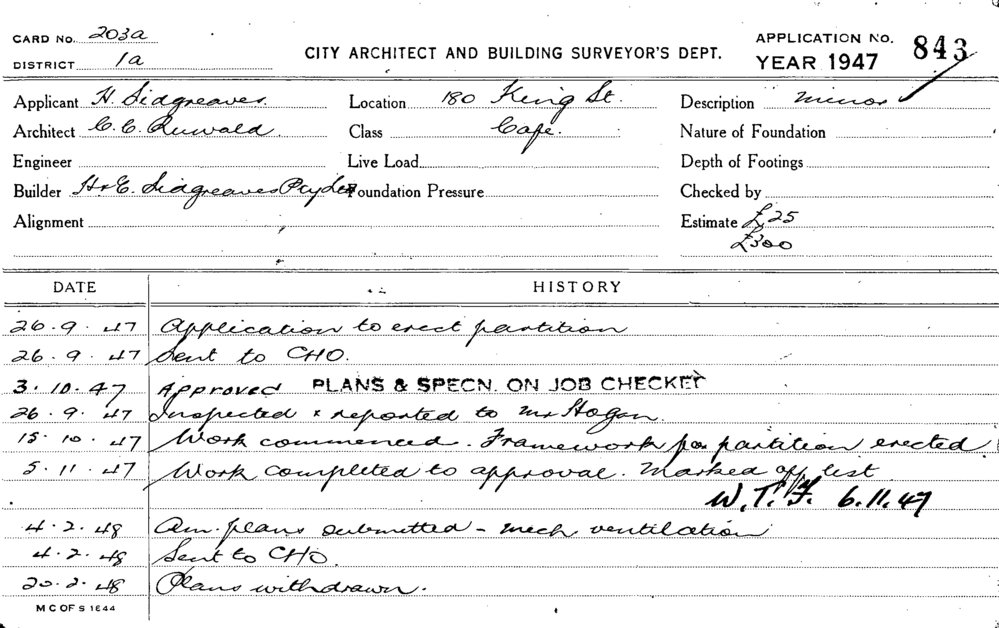 CARD No. 203a
DISTRICT 1a
CITY ARCHITECT AND BUILDING SURVEYOR'S DEPT.
APPLICATION NO. 843
YEAR 1947
Applicant H. Sidgreaves. Location 180 King St. Description minor
Architect C. C. Ruwald. Class Cafe. Nature of Foundation
Engineer Live Load Depth of Footings
Builder H & E. Sidgreaves Pty Ltd Foundation Pressure Checked by
Alignment Estimate £25
£300
DATE HISTORY
26.9.47 Application to erect partition
26.9.47 Sent to CHO.
3.10.47 Approved PLANS & SPECN. ON JOB CHECKED
26.9.47 Inspected & reported to Mr Hogan.
15.10.47 Work commenced. Framework for partition erected.
5.11.47 Work completed to approval. Marked off list
W.T.F. 6.11.47
4.2.48 Am. plans submitted - mech ventilation
4.2.48 Sent to CHO.
20.2.48 Plans withdrawn.
M C OF S 1644